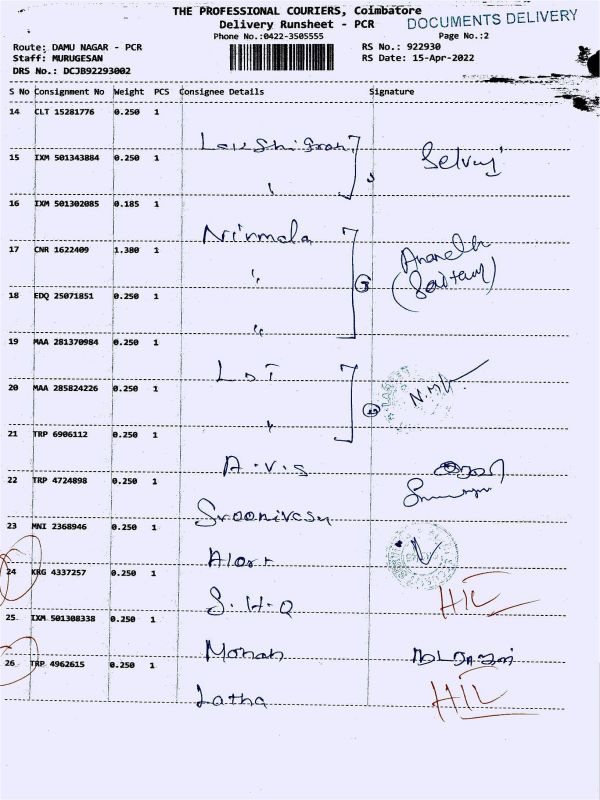 THE PROFESSIONAL COURIERS, Coimbatore
Delivery Runsheet - PCR
DOCUMENTS DELIVERY
Phone No.:0422-3505555
Page No.:2
Route: DAMU NAGAR - PCR
RS No.: 922930
Staff: MURUGESAN
RS Date: 15-Apr-2022
DRS No.: DCJB92293002
S No Consignment No Weight PCS Consignee Details Signature
14 CLT 15281776 0.250 1
15 IXM 501343884 0.250 1 Selvaj
16 IXM 501302085 0.185 1
Nirmala
17 CNR 1622409 1.380 1
18 EDQ 25071851 0.250 1
19 MAA 281370984 0.250 1
L&T
20 MAA 285824226 0.250 1
21 TRP 6906112 0.250 1
A.V.S
22 TRP 4724898 0.250 1
Sroonivasu
23 MNI 2368946 0.250 1
Alort
24 KRG 4337257 0.250 1
S.H.Q
25 IXM 501308338 0.250 1
Mohan
26 TRP 4962615 0.250 1
Latha